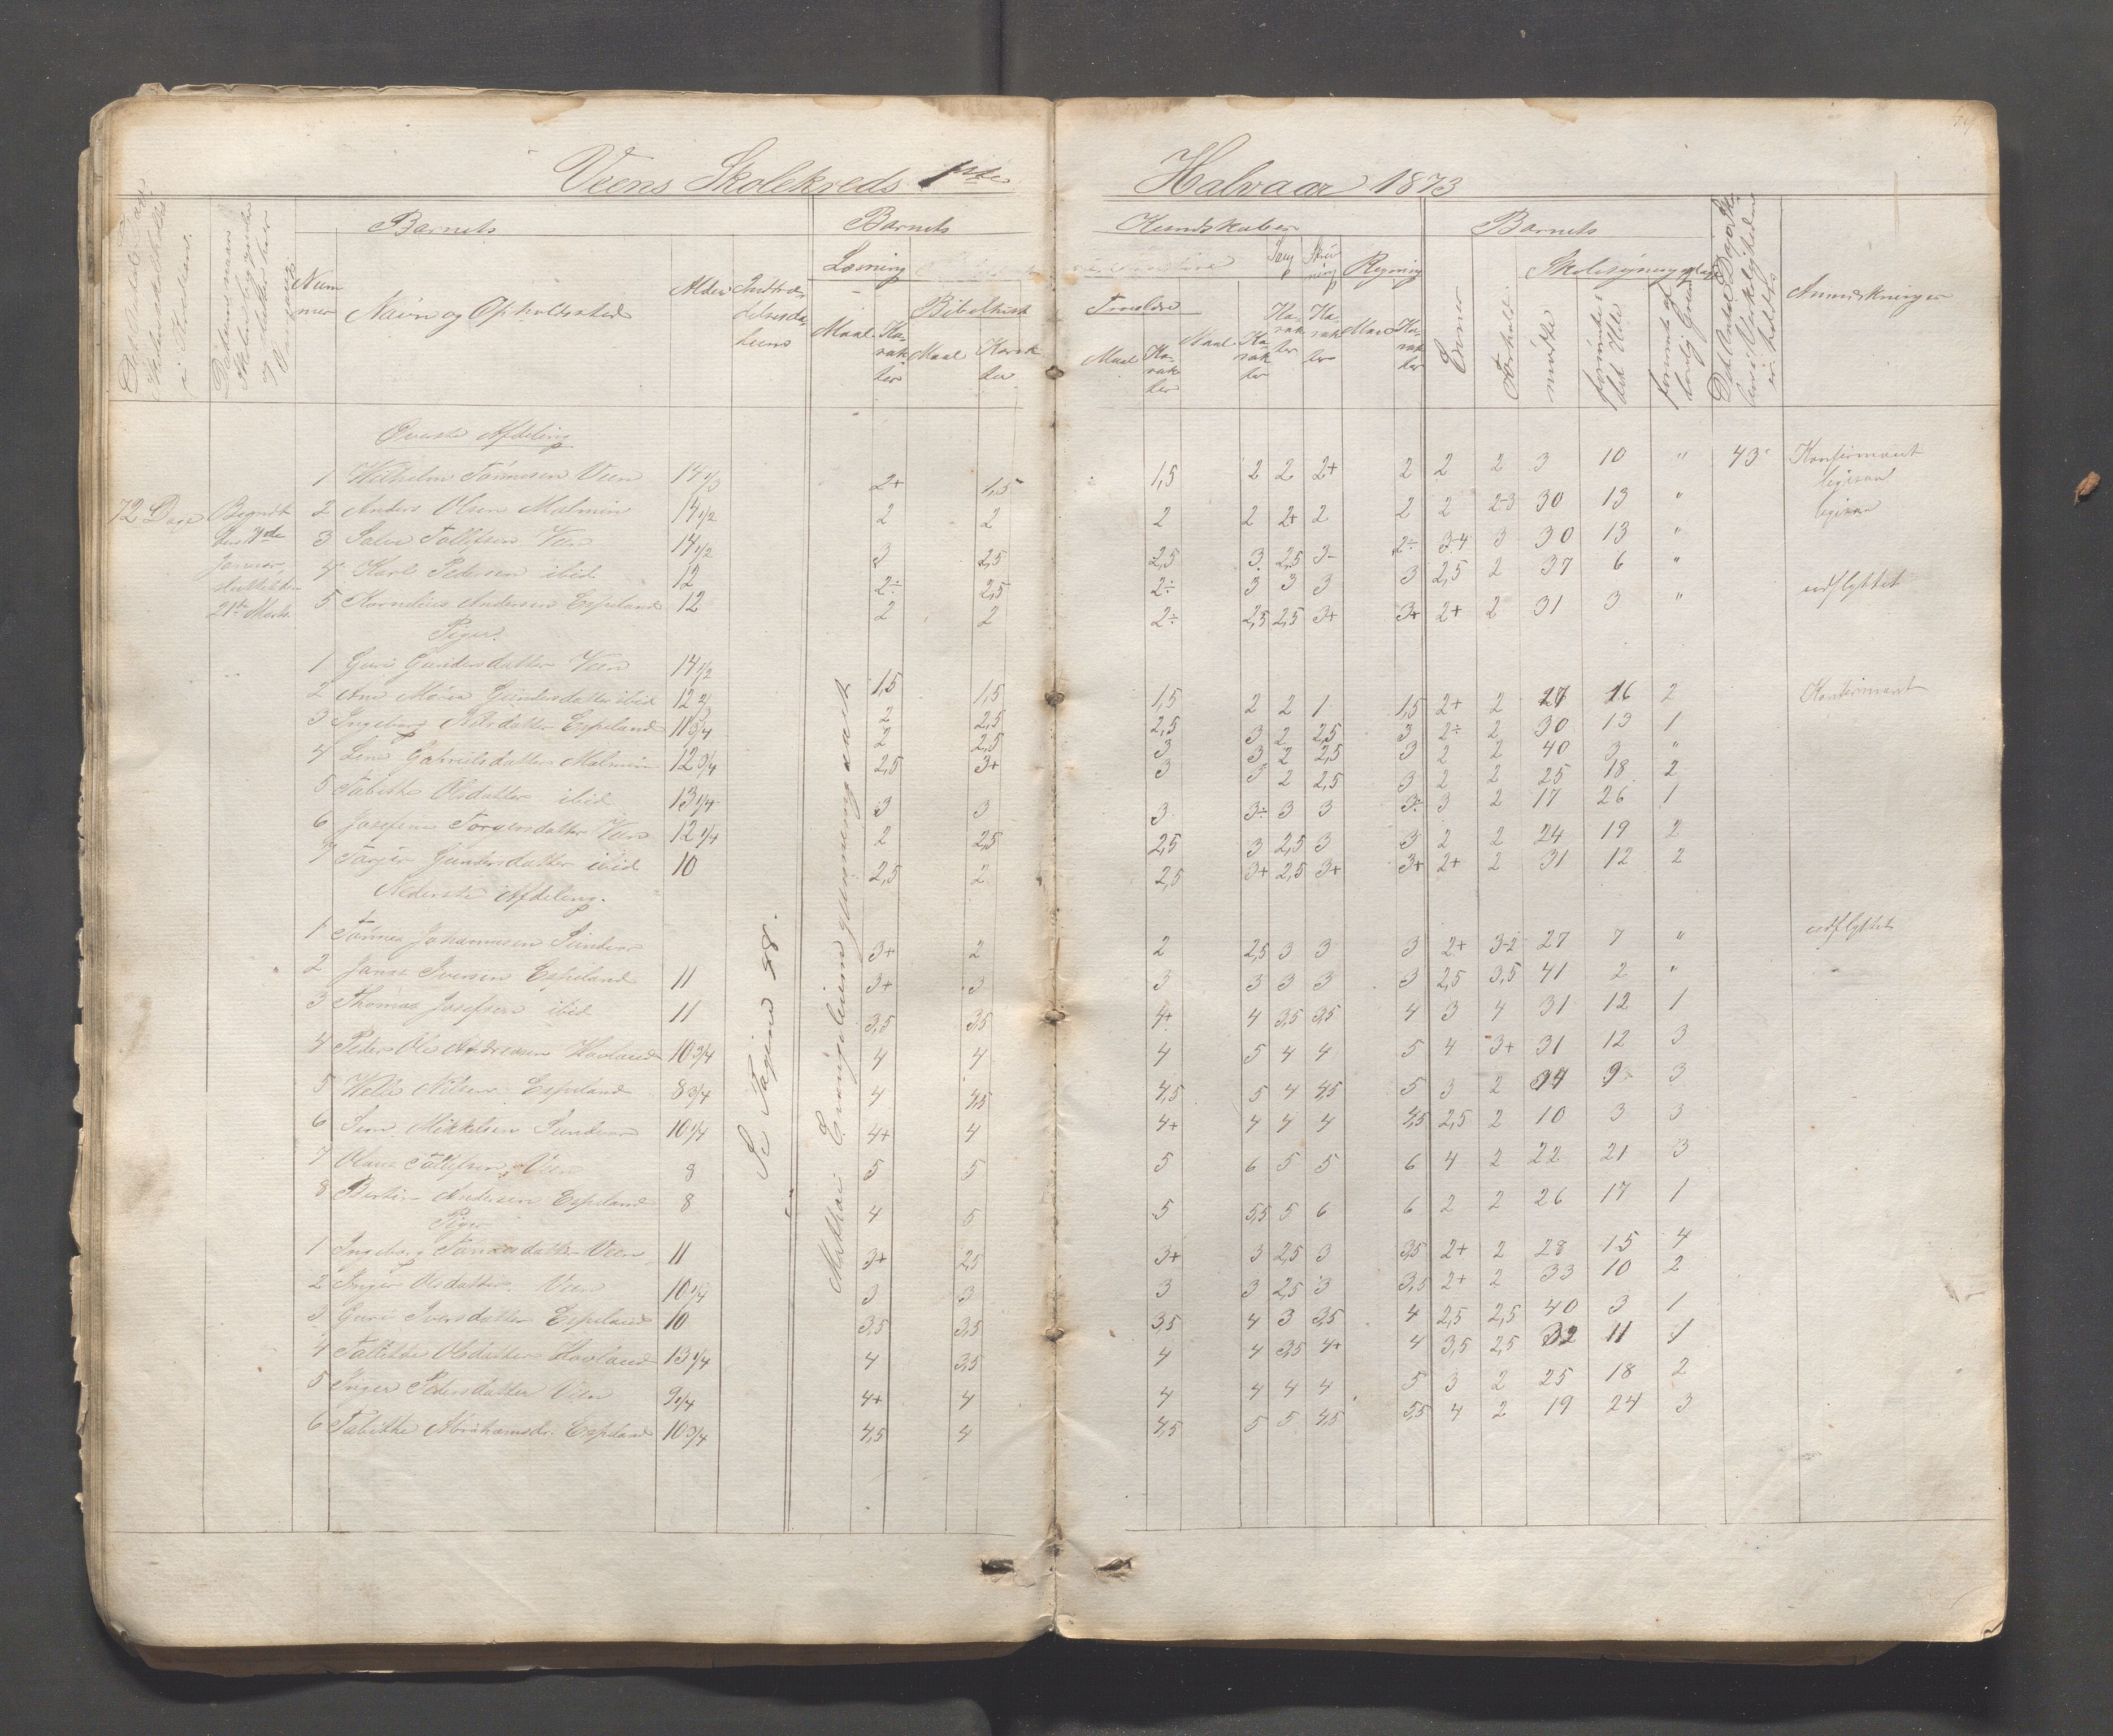 Veens Skolekreds 1ste Halvaar 1873
Barnets
Barnets
Kundskaber
Barnets
Nummer
Navn og Opholdssted
Alder
Læsning
Bibelhist
Maal
Karakter
Maal
Karakter
Troeslære
Maal
Karakter
Maal
Karakter
Sang
Karakter
Skrivning
Karakter
Regning
Karakter
Evner
Forhold
Skolesøgning
mødte
forsømte
Anmærkninger
Øverste Afdeling
72 Dage
Begyndt
den 7de
Januar
21de Marts
1 Wilhelm Tønnesen Veen 14 1/3 2+ 1,5 1,5 2 2 2+ 2 2 2 3 10 " 43 Konfirmant
2 Anders Olsen Malmin 14 1/2 2 2 2 2 2+ 2 2 2 2-3 30 13 "
3 Salve Tollefsen Veen 14 1/2 3 2,5 2,5 3 2,5 3- 2÷ 3-4 3 30 13 "
4 Karl Pedersen ibid 12 2÷ 2,5 2÷ 3 3 3 3 2,5 2 37 6 "
5 Kornelius Andersen Espeland 12 2 2 2÷ 2,5 2,5 3+ 3+ 2+ 2 31 3 " udflyttet
Piger
1 Guri Gundersdatter Veen 14 1/2 1,5 1,5 1,5 2 2 1 1,5 2+ 2 27 16 2 Konfirmant
2 Ane Maria Gundersdatter ibid 12 2/3 2 2,5 2,5 3 2 2,5 3 2÷ 2 30 13 1
3 Ingeborg Nilsdatter Espeland 11 3/4 2 2,5 3 3 2 2,5 3 2 2 40 3 "
4 Lene Gabrielsdatter Malmin 12 3/4 2,5 3+ 3 3 2 2,5 3 2 2 25 18 2
5 Tabithe Olsdatter ibid 13 1/4 3 3 3 3÷ 3 3 3÷ 3 2 17 26 1
6 Josefine Torgersdatter Veen 12 1/4 2 2,5 2,5 3 2,5 3 3 2 2 24 19 2
7 Torjer Gundersdatter ibid 10 2,5 2 2,5 3+ 2,5 3+ 3+ 2+ 2 31 12 2
Nederste Afdeling.
1 Tønnes Johannesen Sundvor 3+ 2 2 2,5 3 3 3 2+ 3-2 27 7 " udflyttet
2 Janse Iversen Espeland 11 3+ 3 3 3 3 3 3 2,5 3,5 41 2 "
3 Thomas Josefsen ibid 11 3,5 3,5 4+ 4 3,5 3,5 4 3 4 31 12 1
4 Peder Ole Andreasen Hovland 10 3/4 4 4 4 5 4 4 5 4 3+ 31 12 3
5 Nilsen Espeland 8 3/4 4 4,5 4,5 5 4 4,5 5 3 2 34 9 3
6 Sem Mikkelsen Sundvor 10 1/4 4+ 4 4+ 4 4 4 4,5 2,5 2 10 3 3
7 Olaus Tollefsen, Veen 8 5 5 5 6 5 5 6 4 2 22 21 3
8 Bertin Andersen Espeland 8 4 5 5 5,5 5 6 6 2 2 26 17 1
Piger
1 Ingeborg Tønnesdatter Veen 11 3+ 2,5 3+ 3 2,5 3 3,5 2+ 2 28 15 4
2 Inger Olsdatter Veen 10 1/4 3 3 3 3 2,5 3 3,5 2+ 2 33 10 2
3 Guri Iversdatter Espeland 10 3,5 3,5 3,5 4 3 3,5 4 2,5 2,5 40 3 1
4 Olsdatter Hovland 13 1/4 4 3,5 4 4 3,5 4+ 4 3,5 2,5 32 11 1
5 Inger Pedersdatter Veen 9 1/4 4+ 4 4 4 4 4 5 3 2 25 18 2
6 Tabithe Abrahamsdr. Espeland 10 3/4 4,5 4 4,5 5 5 4,5 5,5 4 2 19 24 3
Se Pagina 48.
Mathæi Evangelium gjennemgaaet